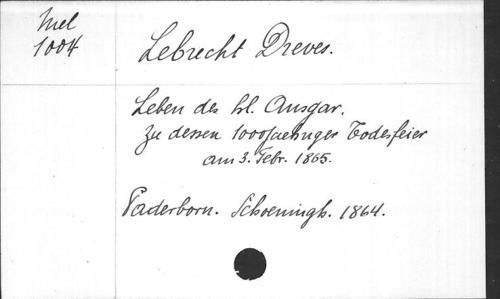 Mel
1004
Lebrecht Dreves.
Leben des hl. Ansgar.
Zu dessen 1000jaehriger Todesfeier
am 3. Febr. 1865.
Paderborn. Schoeningh. 1864.